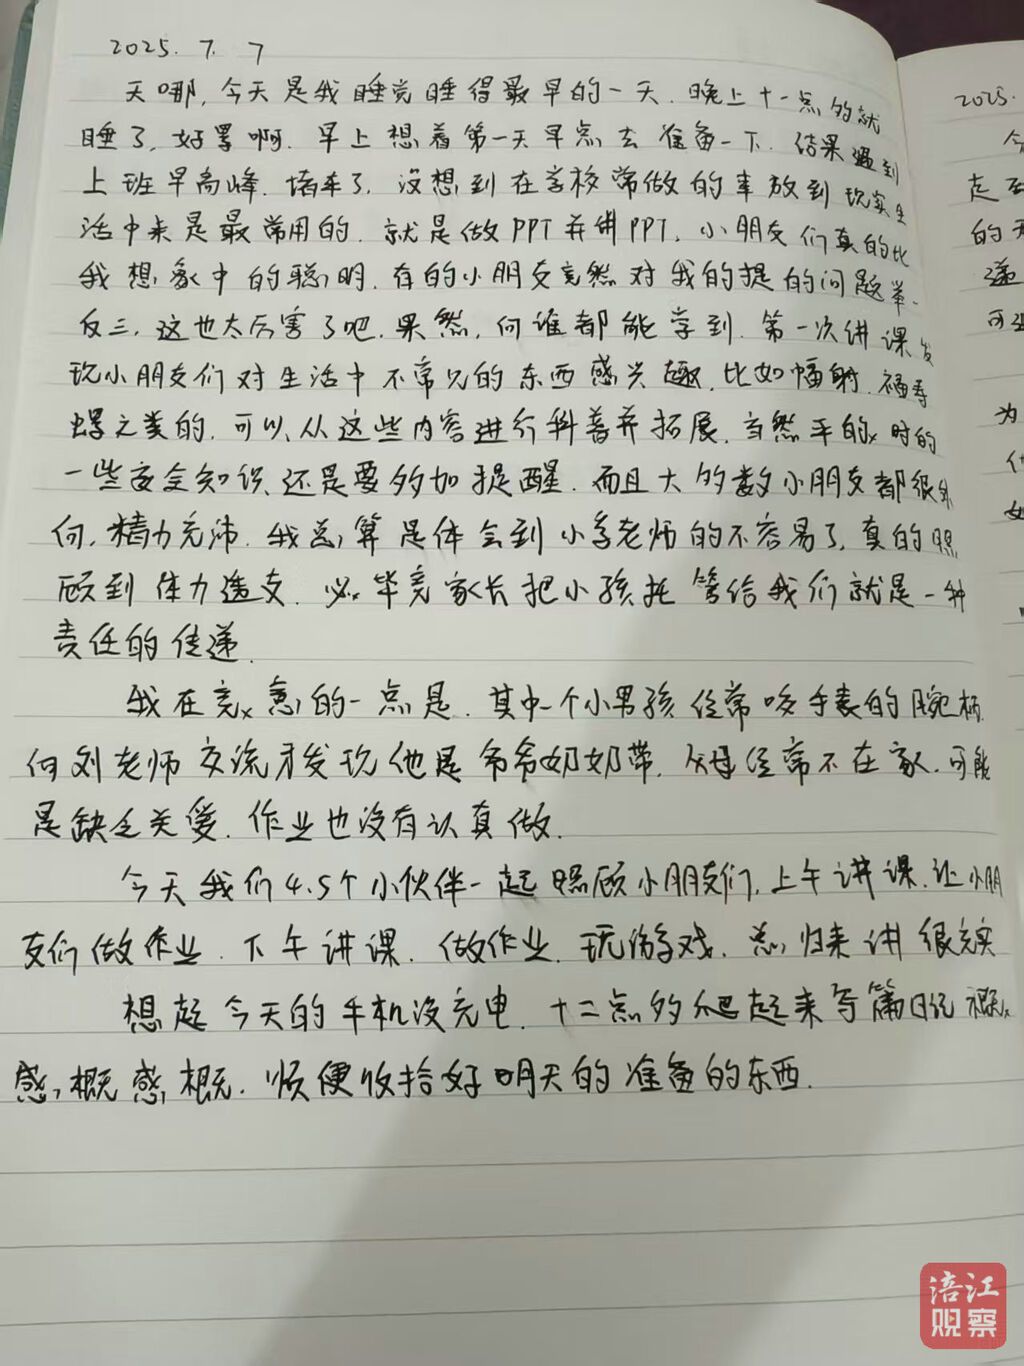 2025. 7. 7
天哪，今天是我睡觉睡得最早的一天．晚上十一点多就
睡了，好累啊．早上想着第一天早点去准备一下．结果遇到
上班早高峰．堵车了．没想到在学校常做的事放到现实生
活中来是最常用的．就是做PPT并讲PPT．小朋友们真的比
我想象中的聪明．有的小朋友竟然对我的提的问题举一
反三，这也太厉害了吧．果然，向谁都能学到．第一次讲课发
现小朋友们对生活中不常见的东西感兴趣．比如辐射．福寿
螺之类的．可以从这些内容进行科普并拓展．当然平的时的
一些安全知识还是要多加提醒．而且大多数小朋友都很外
向，精力充沛．我总算是体会到小学老师的不容易了，真的照
顾到体力透支．必毕竟家长把小孩托管给我们就是一种
责任的传递．
我在意的一点是．其中一个小男孩经常咬手表的腕柄
向刘老师交流才发现他是爷爷奶奶带．父母经常不在家．可能
是缺乏关爱．作业也没有认真做．
今天我们4.5个小伙伴一起照顾小朋友们，上午讲课．让小朋
友们做作业．下午讲课．做作业．玩游戏．总归来讲很充实
想起今天的手机没充电．十二点多爬起来写篇日记
感概感概．顺便收拾好明天的准备的东西．
2025.
今
的
递
为
涪江
观察